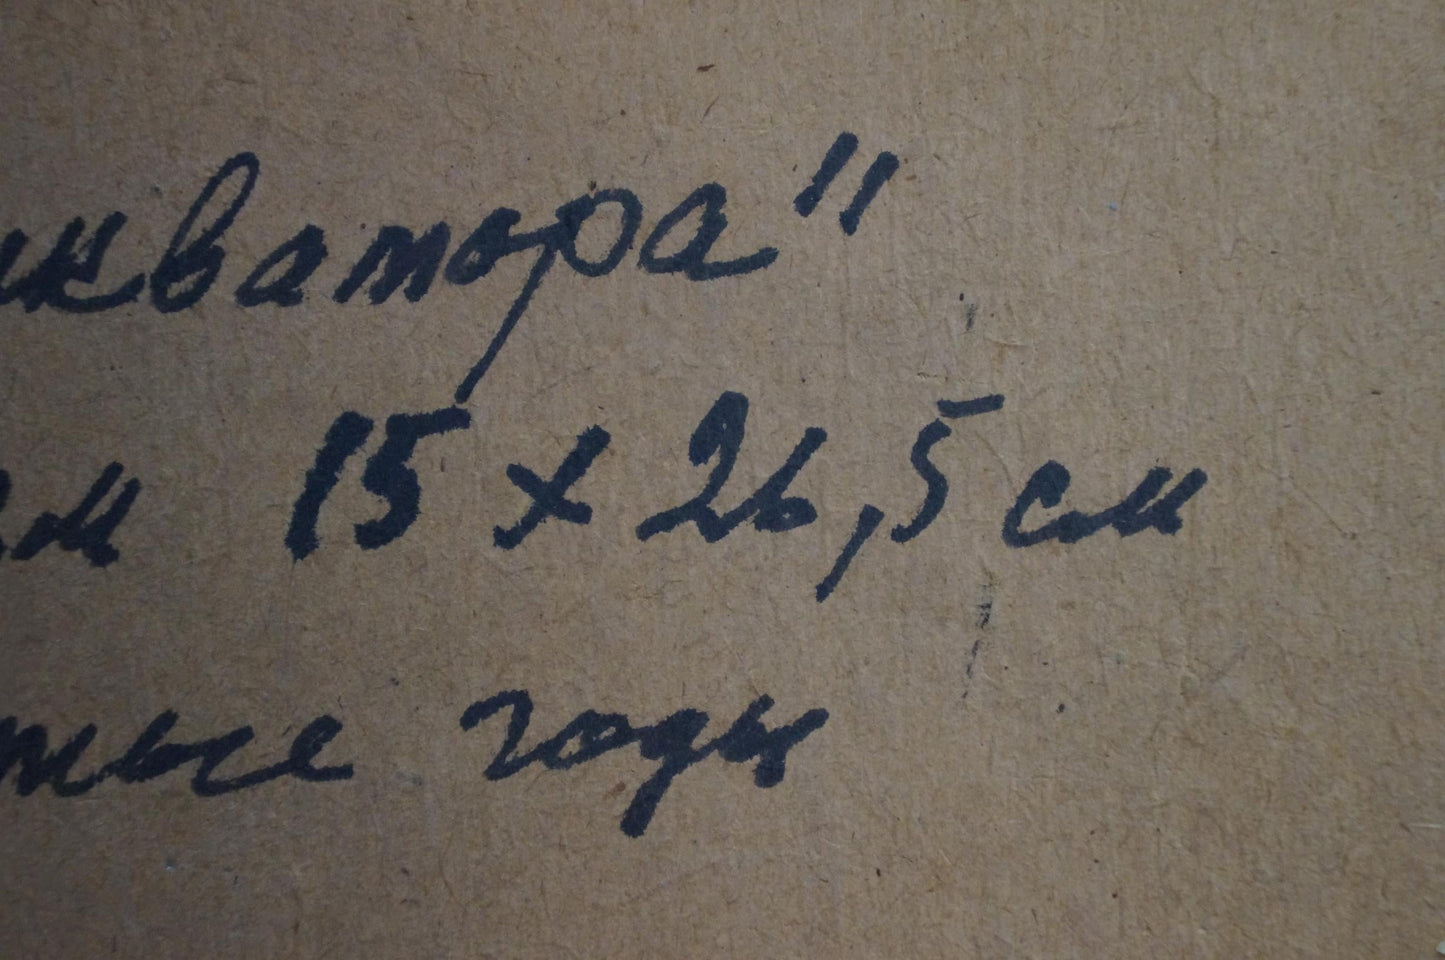 икватора"
ам 15 х 26,5 см
тые годы